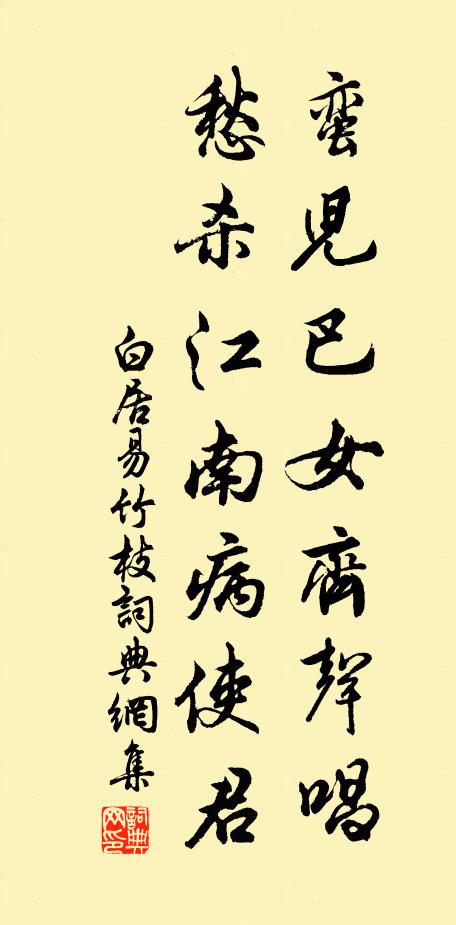 蛮児巴女齊聲唱
愁杀江南病使君
白居易竹枝詞典網集
詞典網印